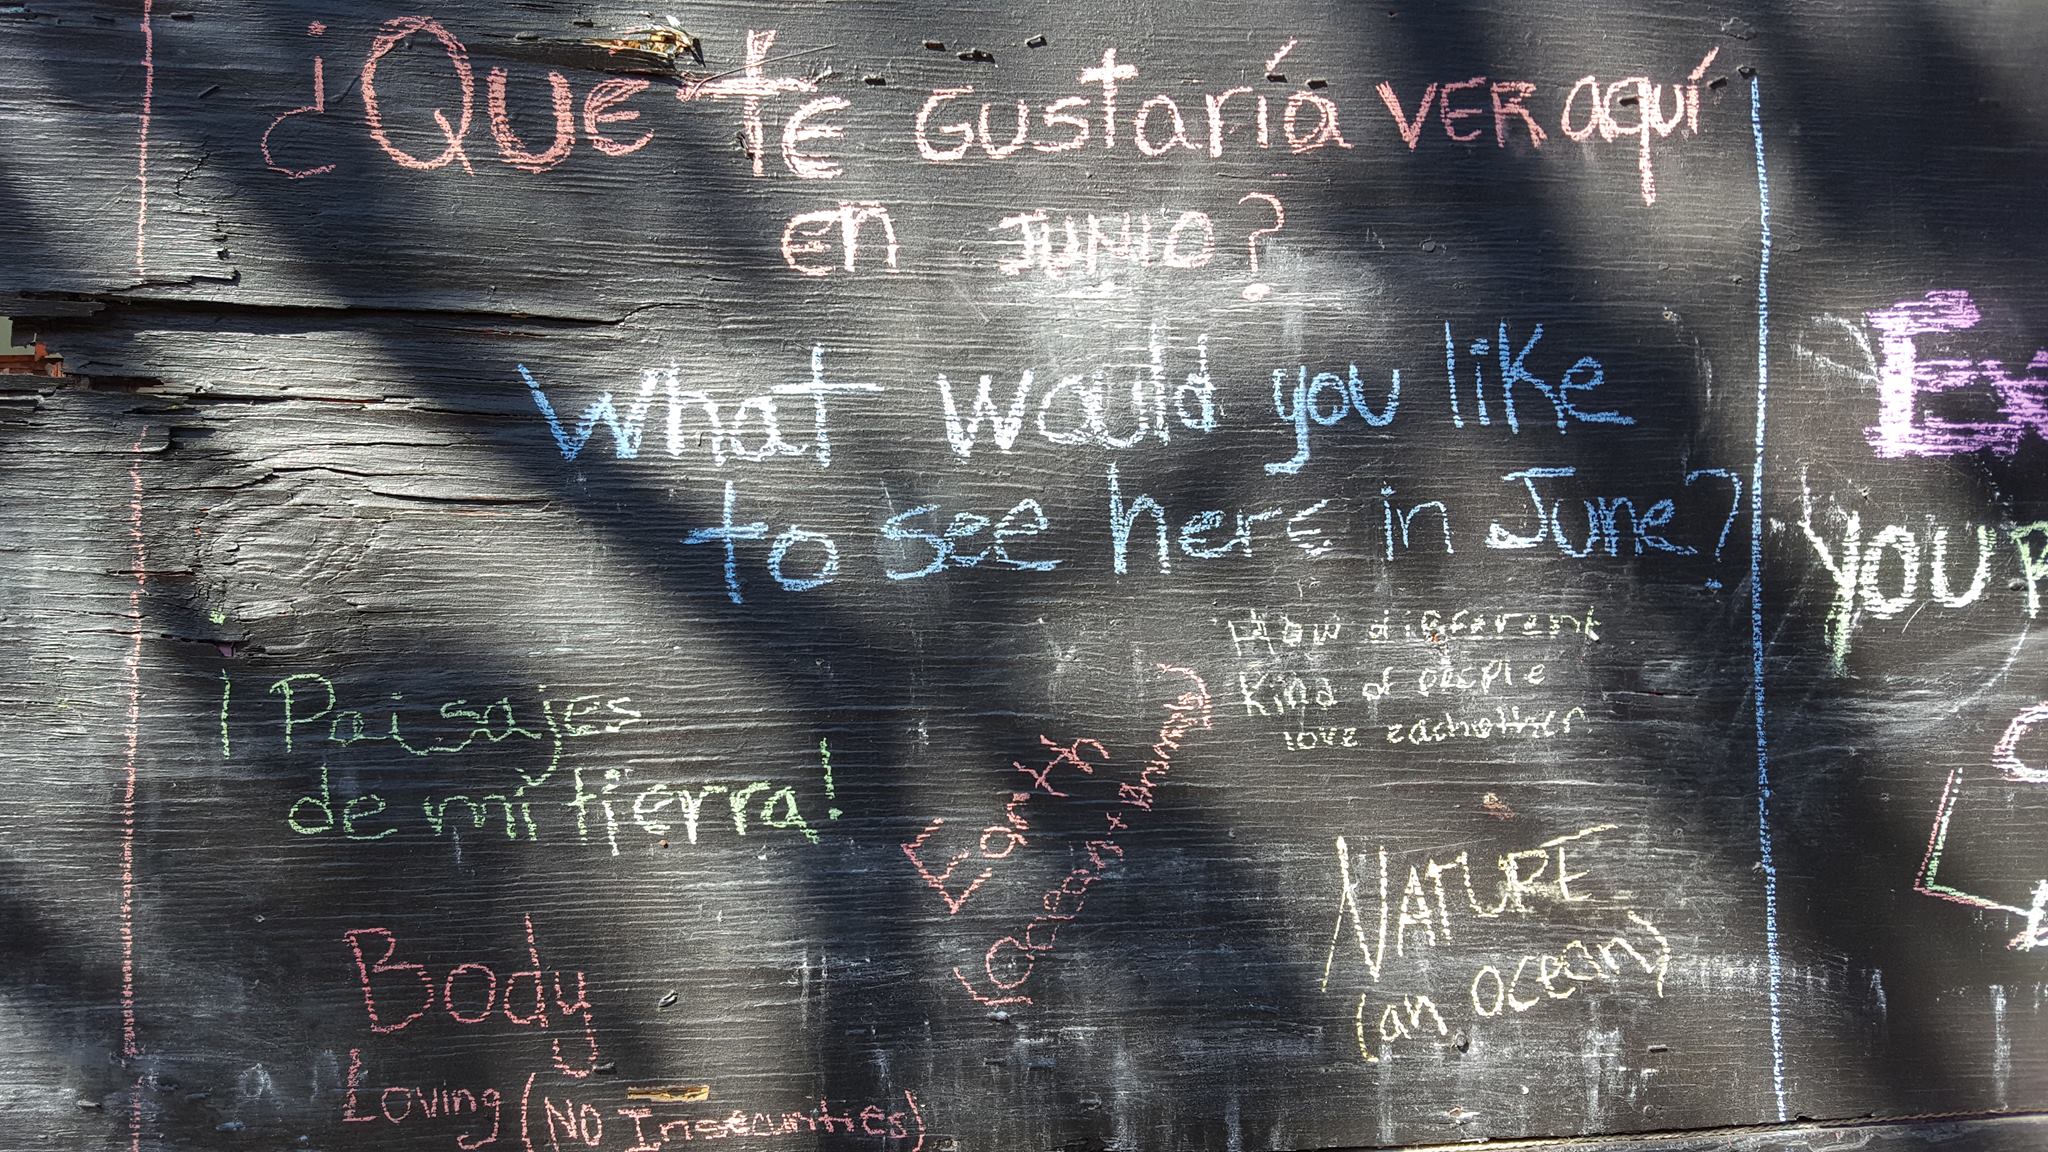 ¿Que te Gustaría VER aquí
en JUNIO?
What would you like
to see here in June?
How different
Kind of people
love eachother
¡Paisajes
de mi tierra!
Earth
NATURE
(an ocean)
Body
Loving (No Insecurities)
You